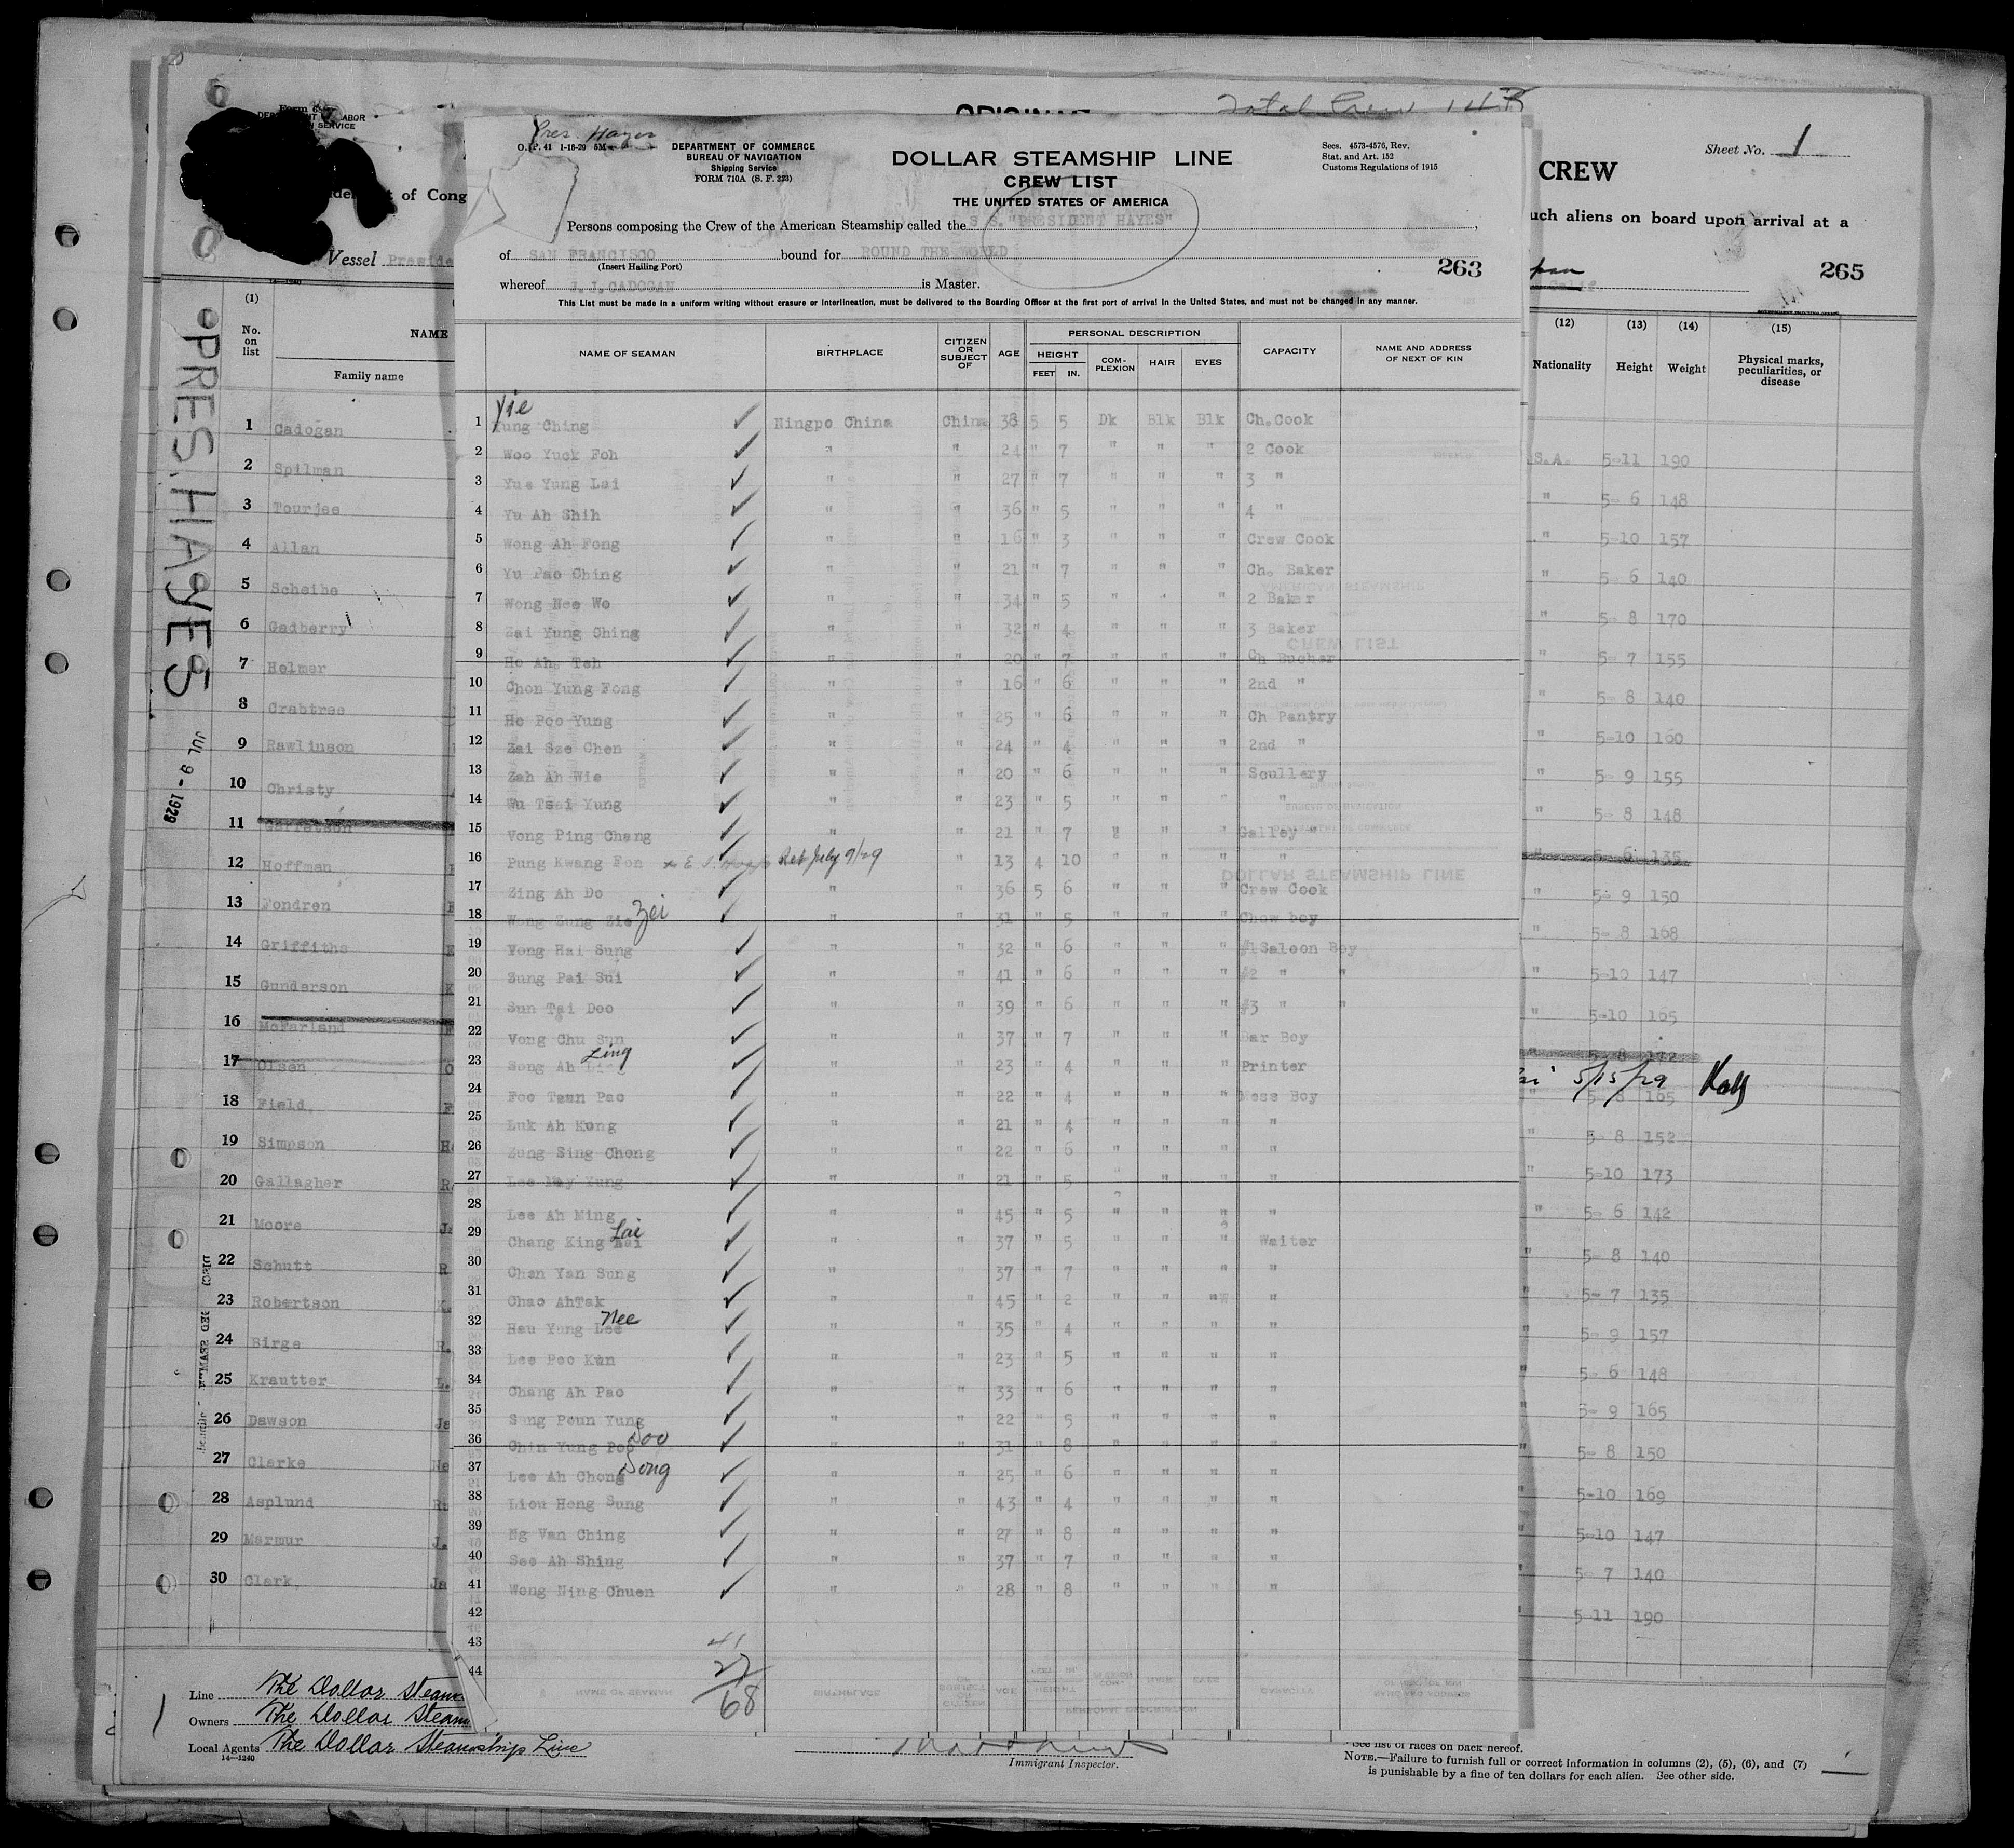 Total Crew
Sheet No. 1
Pres. Hayes
O. P. 41 1-16-29 5M
DEPARTMENT OF COMMERCE
BUREAU OF NAVIGATION
Shipping Service
FORM 710A (S. F. 323)
DOLLAR STEAMSHIP LINE
CREW LIST
THE UNITED STATES OF AMERICA
Secs. 4573-4576, Rev.
Stat. and Art. 152
Customs Regulations of 1915
CREW
of Cong
uch aliens on board upon arrival at a
Persons composing the Crew of the American Steamship called the S S. "PRESIDENT HAYES"
of SAN FRANCISCO bound for ROUND THE WORLD
(Insert Hailing Port)
263
265
whereof J.J.CADOGAN is Master.
This List must be made in a uniform writing without erasure or interlineation, must be delivered to the Boarding Officer at the first port of arrival in the United States, and must not be changed in any manner.
Vessel Preside
PRES. HAYES
JUL 9 - 1929
(1) No. on list
NAME
Family name
1 Cadogan
2 Spilman
3 Tourjee
4 Allan
5 Scheibe
6 Gadberry
7 Helmer
8 Crabtree
9 Rawlinson
10 Christy
11 Garratson
12 Hoffman
13 Fondren
14 Griffiths
15 Gunderson
16 McFarland
17 Olsen
18 Field
19 Simpson
20 Gallagher
21 Moore
22 Schutt
23 Robertson
24 Birge
25 Krautter
26 Dawson
27 Clarke
28 Asplund
29 Marmur
30 Clark
Line The Dollar Steam
Owners The Dollar Steam
Local Agents The Dollar Steamship Line
14-1240
NAME OF SEAMAN BIRTHPLACE CITIZEN OR SUBJECT OF AGE PERSONAL DESCRIPTION CAPACITY NAME AND ADDRESS OF NEXT OF KIN
HEIGHT FEET IN. COMPLEXION HAIR EYES
Yie
1 Yung Ching Ningpo China China 38 5 5 Dk Blk Blk Ch.Cook
2 Woo Yuck Foh " " 24 " 7 " " " 2 Cook
3 Yue Yung Lai " " 27 " 7 " " " 3 "
4 Yu Ah Shih " " 36 " 5 " " " 4 "
5 Wong Ah Fong " " 16 " 3 " " " Crew Cook
6 Yu Pao Ching " " 21 " 7 " " " Ch. Baker
7 Wong Nee Wo " " 34 " 5 " " " 2 Baker
8 Zai Yung Ching " " 32 " 4 " " " 3 Baker
9 Ho Ah Teh " " 20 " 7 " " " Ch Bucher
10 Chon Yung Fong " " 16 " 6 " " " 2nd "
11 Ho Poo Yung " " 25 " 6 " " " Ch Pantry
12 Zai Sze Chen " " 24 " 4 " " " 2nd "
13 Zah Ah Wie " " 20 " 6 " " " Scullery
14 Wu Tsai Yung " " 23 " 5 " " " "
15 Vong Ping Chang " " 21 " 7 " " " Galley "
16 Pung Kwang Fon Reb July 9/29 " 13 4 10 " " " "
17 Zing Ah Do " " 36 5 6 " " " Crew Cook
18 Wong Zung Zie Zei " " 31 " 5 " " " Chow boy
19 Vong Hai Sung " " 32 " 6 " " " #1Saloon Boy
20 Zung Pai Sui " " 41 " 6 " " " #2 " "
21 Sun Tai Doo " " 39 " 6 " " " #3 " "
22 Vong Chu Sun " " 37 " 7 " " " Bar Boy
23 Song Ah Ling " " 23 " 4 " " " Printer
24 Foo Tsun Pao " " 22 " 4 " " " Mess Boy
25 Luk Ah Kung " " 21 " 4 " " " "
26 Zung Sing Chong " " 22 " 6 " " " "
27 Lee May Yung " " 21 " 5 " " "
28 Lee Ah Ming " " 45 " 5 " " " "
29 Chang King Lai " " 37 " 5 " " " Waiter
30 Chen Yan Sung " 37 " 7 " " " "
31 Chao AhTak " " 45 " 2 " " " "
32 Hau Yung Lee Nee " " 35 " 4 " " " "
33 Lee Poo Kun " " 23 " 5 " " " "
34 Chang Ah Pao " " 33 " 6 " " " "
35 Sang Poun Yung " " 22 " 5 " " " "
36 Chin Yung Poo Doo " " 31 " 8 " " " "
37 Lee Ah Chong Dong " " 25 " 6 " " " "
38 Liou Hong Sung " " 43 " 4 " " " "
39 Ng Van Ching " " 27 " 8 " " " "
40 See Ah Shing " " 37 " 7 " " " "
41 Wong Ning Chuen " " 28 " 8 " " " "
42
43
44
41
27
68
(12) Nationality (13) Height (14) Weight (15) Physical marks, peculiarities, or disease
S.A. 5-11 190
" 5- 6 148
" 5-10 157
" 5- 6 140
" 5- 8 170
" 5- 7 155
" 5- 8 140
" 5-10 160
" 5- 9 155
" 5- 8 148
" 5- 6 135
" 5- 9 150
" 5- 8 168
" 5-10 147
" 5-10 165
" 5- 8 172
5/15/29
" 5- 8 165
" 5- 8 152
" 5-10 173
" 5- 6 142
" 5- 8 140
" 5- 7 135
" 5- 9 157
" 5- 6 148
" 5- 9 165
" 5- 8 150
" 5-10 169
" 5-10 147
" 5- 7 140
" 5-11 190
Immigrant Inspector.
See list of races on back hereof.
NOTE.—Failure to furnish full or correct information in columns (2), (5), (6), and (7)
is punishable by a fine of ten dollars for each alien. See other side.